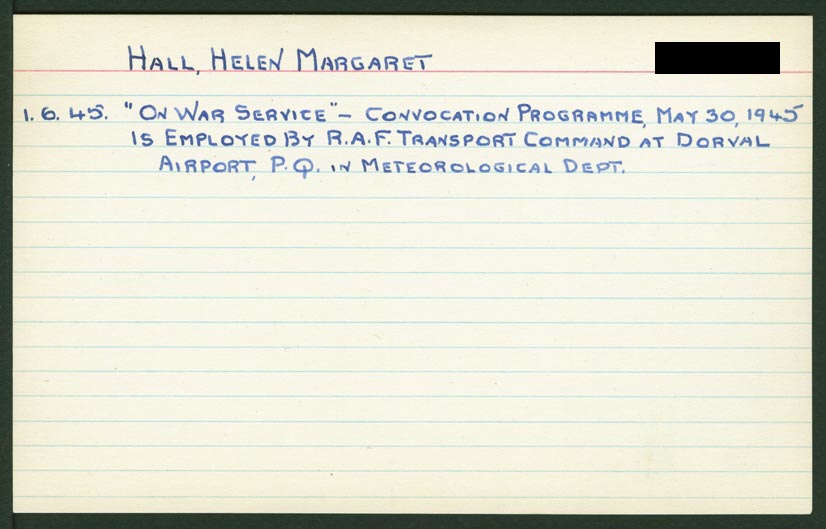 HALL, HELEN MARGARET
1.6.45. "ON WAR SERVICE" – CONVOCATION PROGRAMME, MAY 30, 1945
IS EMPLOYED BY R.A.F. TRANSPORT COMMAND AT DORVAL
AIRPORT, P.Q. IN METEOROLOGICAL DEPT.